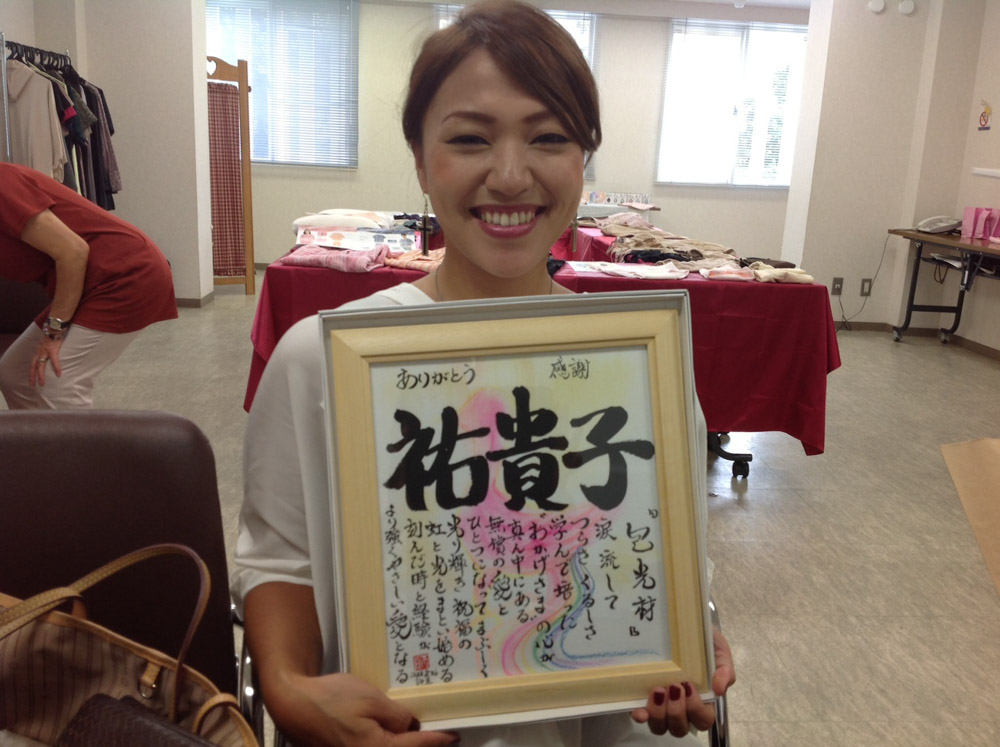 ありがとう
感謝
祐貴子
涙流して
つらさくるしさ
学んで培った
"おかげさま"の心が
真ん中にある
無償の愛と
ひとつになってまぶしく
光り輝き祝福の
虹と光をまとい始める
刻んだ時と経験が
より強くやさしい愛となる